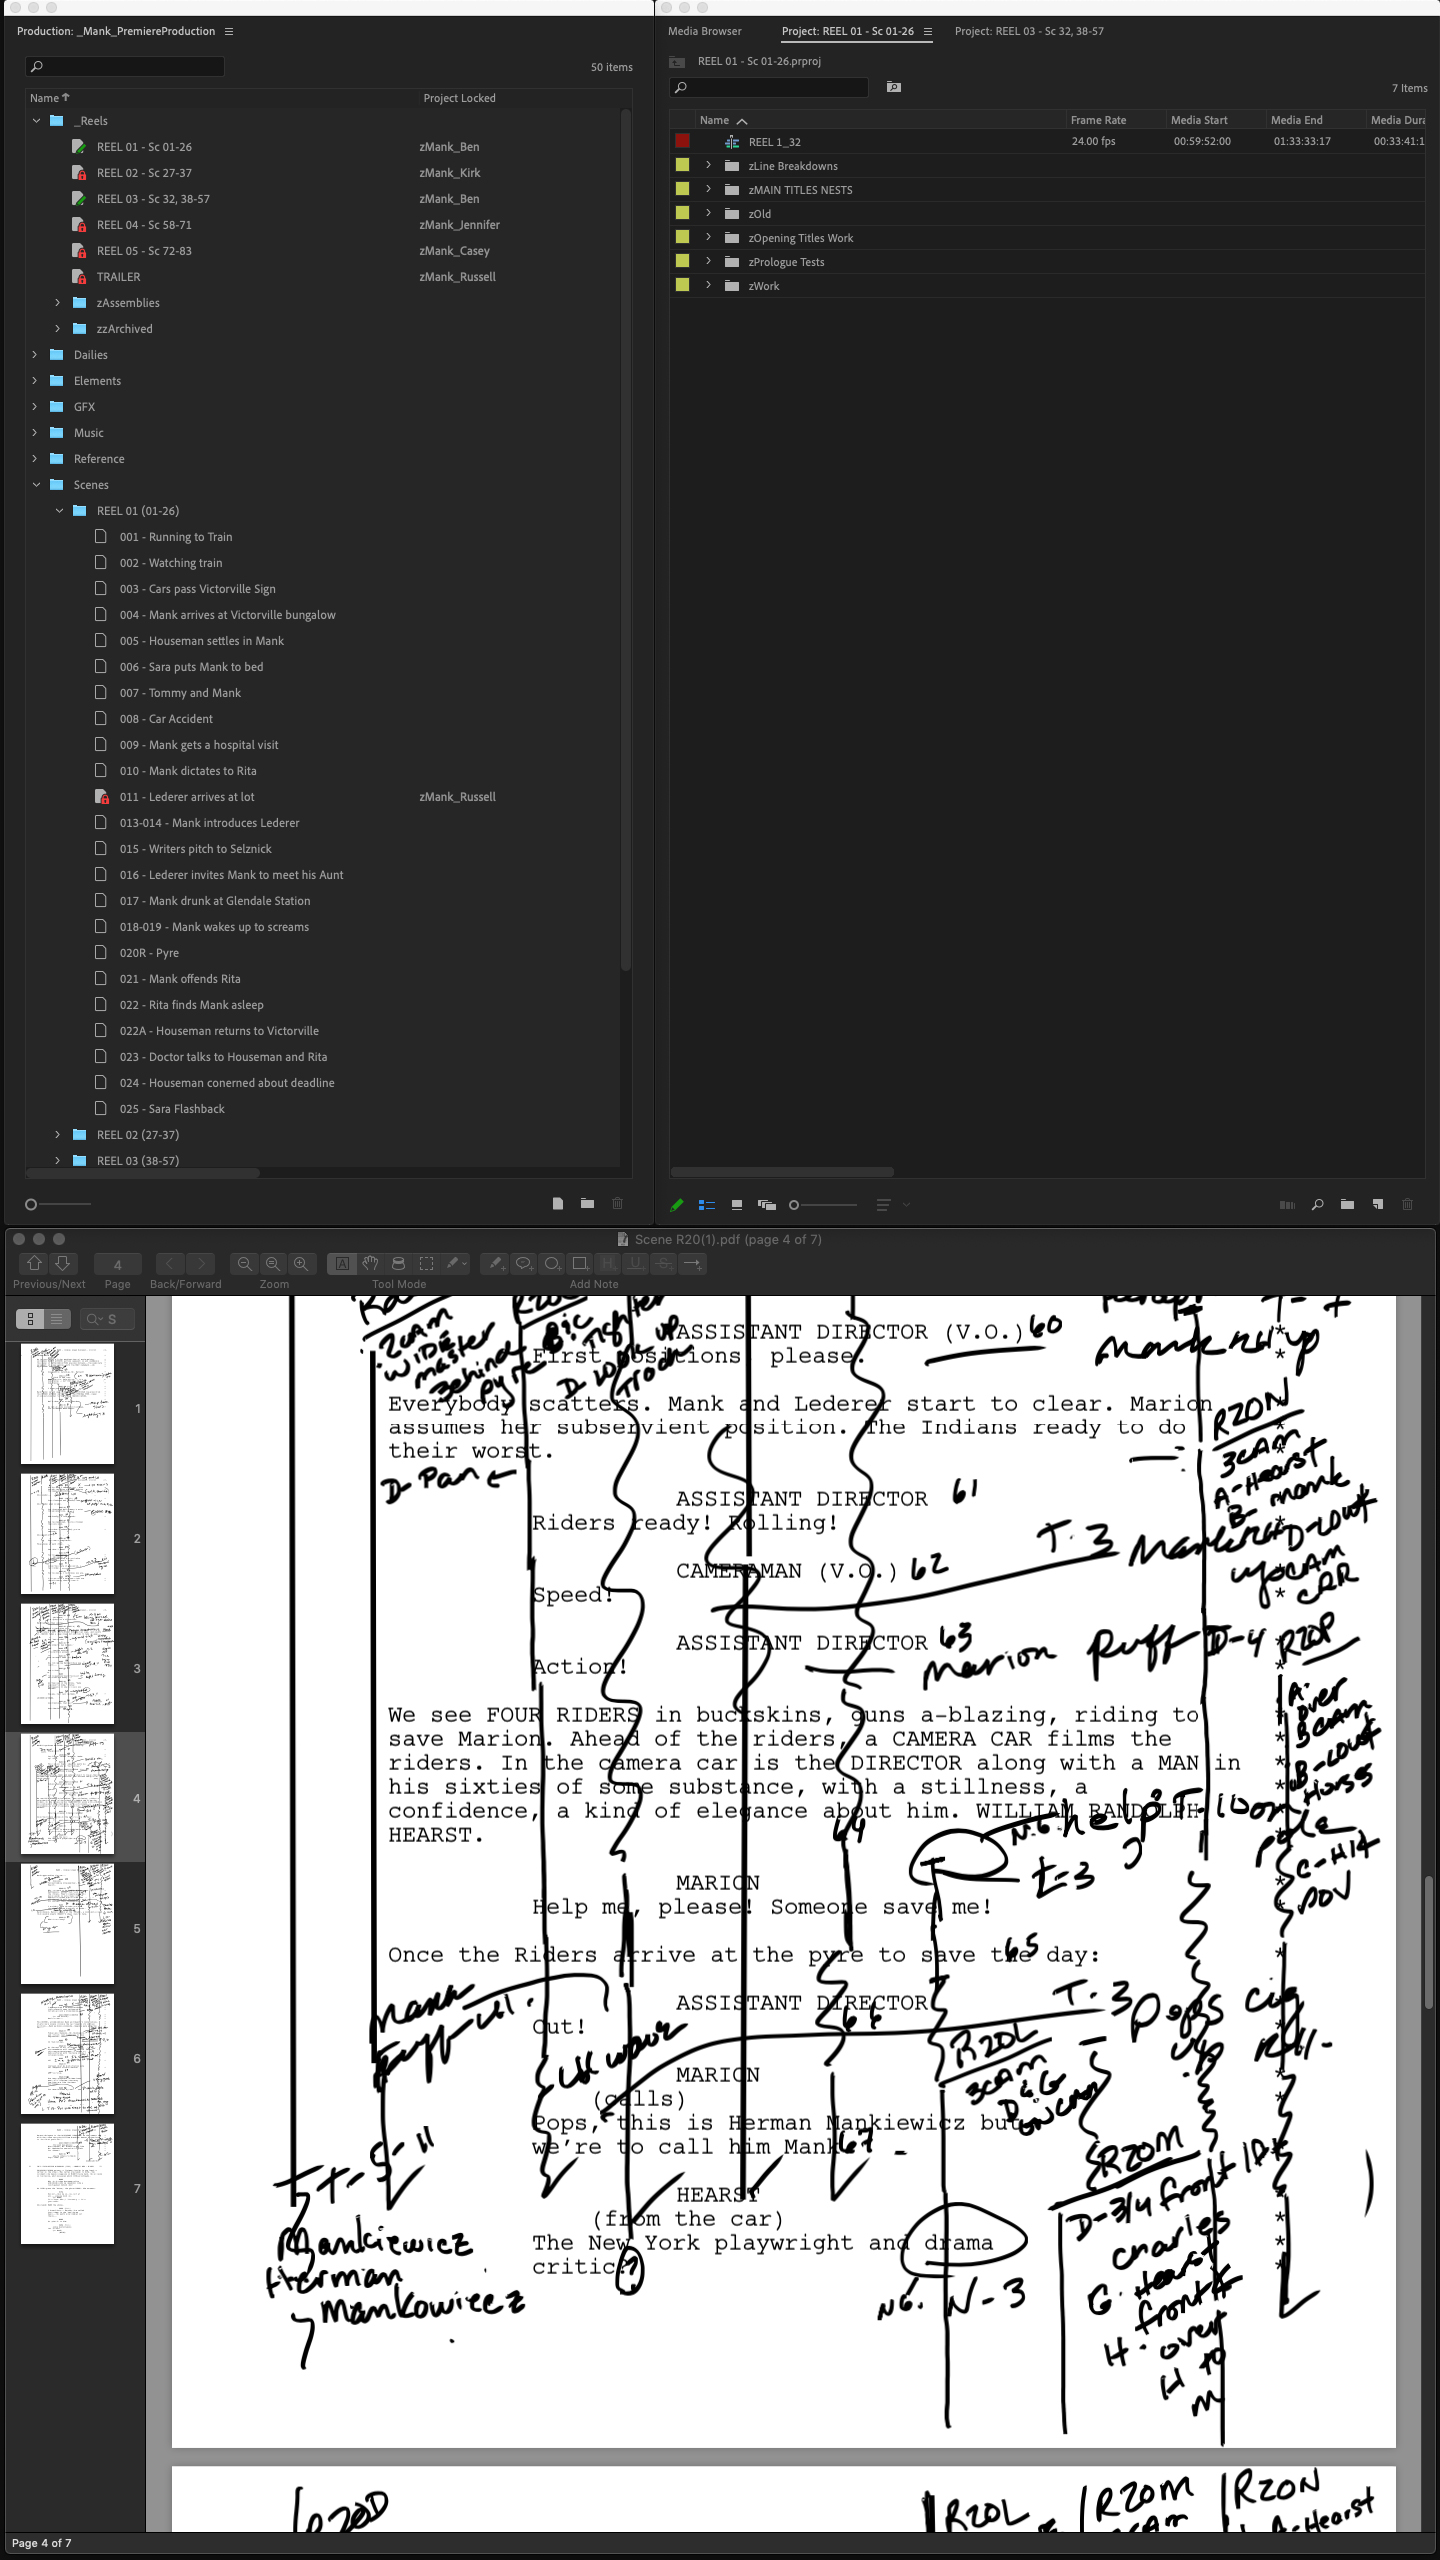 Production: _Mank_PremiereProduction
50 items
Name
Project Locked
_Reels
REEL 01 - Sc 01-26 zMank_Ben
REEL 02 - Sc 27-37 zMank_Kirk
REEL 03 - Sc 32, 38-57 zMank_Ben
REEL 04 - Sc 58-71 zMank_Jennifer
REEL 05 - Sc 72-83 zMank_Casey
TRAILER zMank_Russell
zAssemblies
zzArchived
Dailies
Elements
GFX
Music
Reference
Scenes
REEL 01 (01-26)
001 - Running to Train
002 - Watching train
003 - Cars pass Victorville Sign
004 - Mank arrives at Victorville bungalow
005 - Houseman settles in Mank
006 - Sara puts Mank to bed
007 - Tommy and Mank
008 - Car Accident
009 - Mank gets a hospital visit
010 - Mank dictates to Rita
011 - Lederer arrives at lot zMank_Russell
013-014 - Mank introduces Lederer
015 - Writers pitch to Selznick
016 - Lederer invites Mank to meet his Aunt
017 - Mank drunk at Glendale Station
018-019 - Mank wakes up to screams
020R - Pyre
021 - Mank offends Rita
022 - Rita finds Mank asleep
022A - Houseman returns to Victorville
023 - Doctor talks to Houseman and Rita
024 - Houseman conerned about deadline
025 - Sara Flashback
REEL 02 (27-37)
REEL 03 (38-57)
Media Browser Project: REEL 01 - Sc 01-26 Project: REEL 03 - Sc 32, 38-57
REEL 01 - Sc 01-26.prproj
7 Items
Name Frame Rate Media Start Media End Media Dura
REEL 1_32 24.00 fps 00:59:52:00 01:33:33:17 00:33:41:1
zLine Breakdowns
zMAIN TITLES NESTS
zOld
zOpening Titles Work
zPrologue Tests
zWork
Scene R20(1).pdf (page 4 of 7)
4
Previous/Next Page Back/Forward Zoom Tool Mode Add Note
S
1
2
3
4
5
6
7
2CAM
WIDE
master
Behind
pyre
ASSISTANT DIRECTOR (V.O.) 60
First positions please.
Everybody scatters. Mank and Lederer start to clear. Marion
assumes her subservient position. The Indians ready to do
their worst.
D- Pan
R20N
3CAM
A-Hearst
B- mank
ASSISTANT DIRECTOR 61
Riders ready! Rolling!
T. 3
CAMERAMAN (V.O.) 62
Speed!
ASSISTANT DIRECTOR 63
Action!
Marion Puff T-4
R20P
We see FOUR RIDERS in buckskins, guns a-blazing, riding to
save Marion. Ahead of the riders, a CAMERA CAR films the
riders. In the camera car is the DIRECTOR along with a MAN in
his sixties of some substance, with a stillness, a
confidence, a kind of elegance about him. WILLIAM RANDOLPH
HEARST.
64
N.G.
help
T-3
MARION
Help me, please! Someone save me!
Once the Riders arrive at the pyre to save the day:
65
ASSISTANT DIRECTOR
Cut!
T. 3
66
R20L
3CAM
MARION
(calls)
Pops, this is Herman Mankiewicz but
we're to call him Mank. 67
R20M
D-3/4 front
Charles
G. Hearst
front
H. over
H to
M
HEARST
(from the car)
The New York playwright and drama
critic?
N.G. N-3
T-5-11
Mankiewicz
Herman
Mankowicez
R20D
R20L
R20M
R20N
A-Hearst
Page 4 of 7